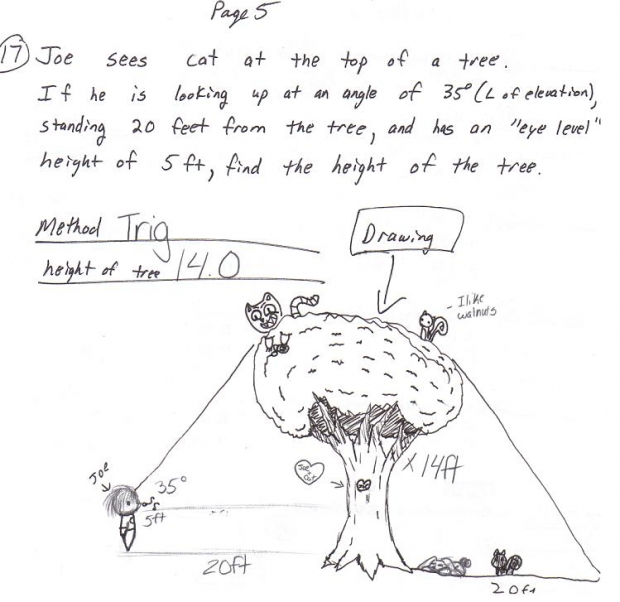 Page 5
17 Joe sees cat at the top of a tree.
If he is looking up at an angle of 35° (L of elevation),
standing 20 feet from the tree, and has an "eye level"
height of 5 ft, find the height of the tree.
Method Trig
height of tree 14.0
Drawing
- I like
walnuts
Joe
35°
5ft
X 14ft
20ft
20ft